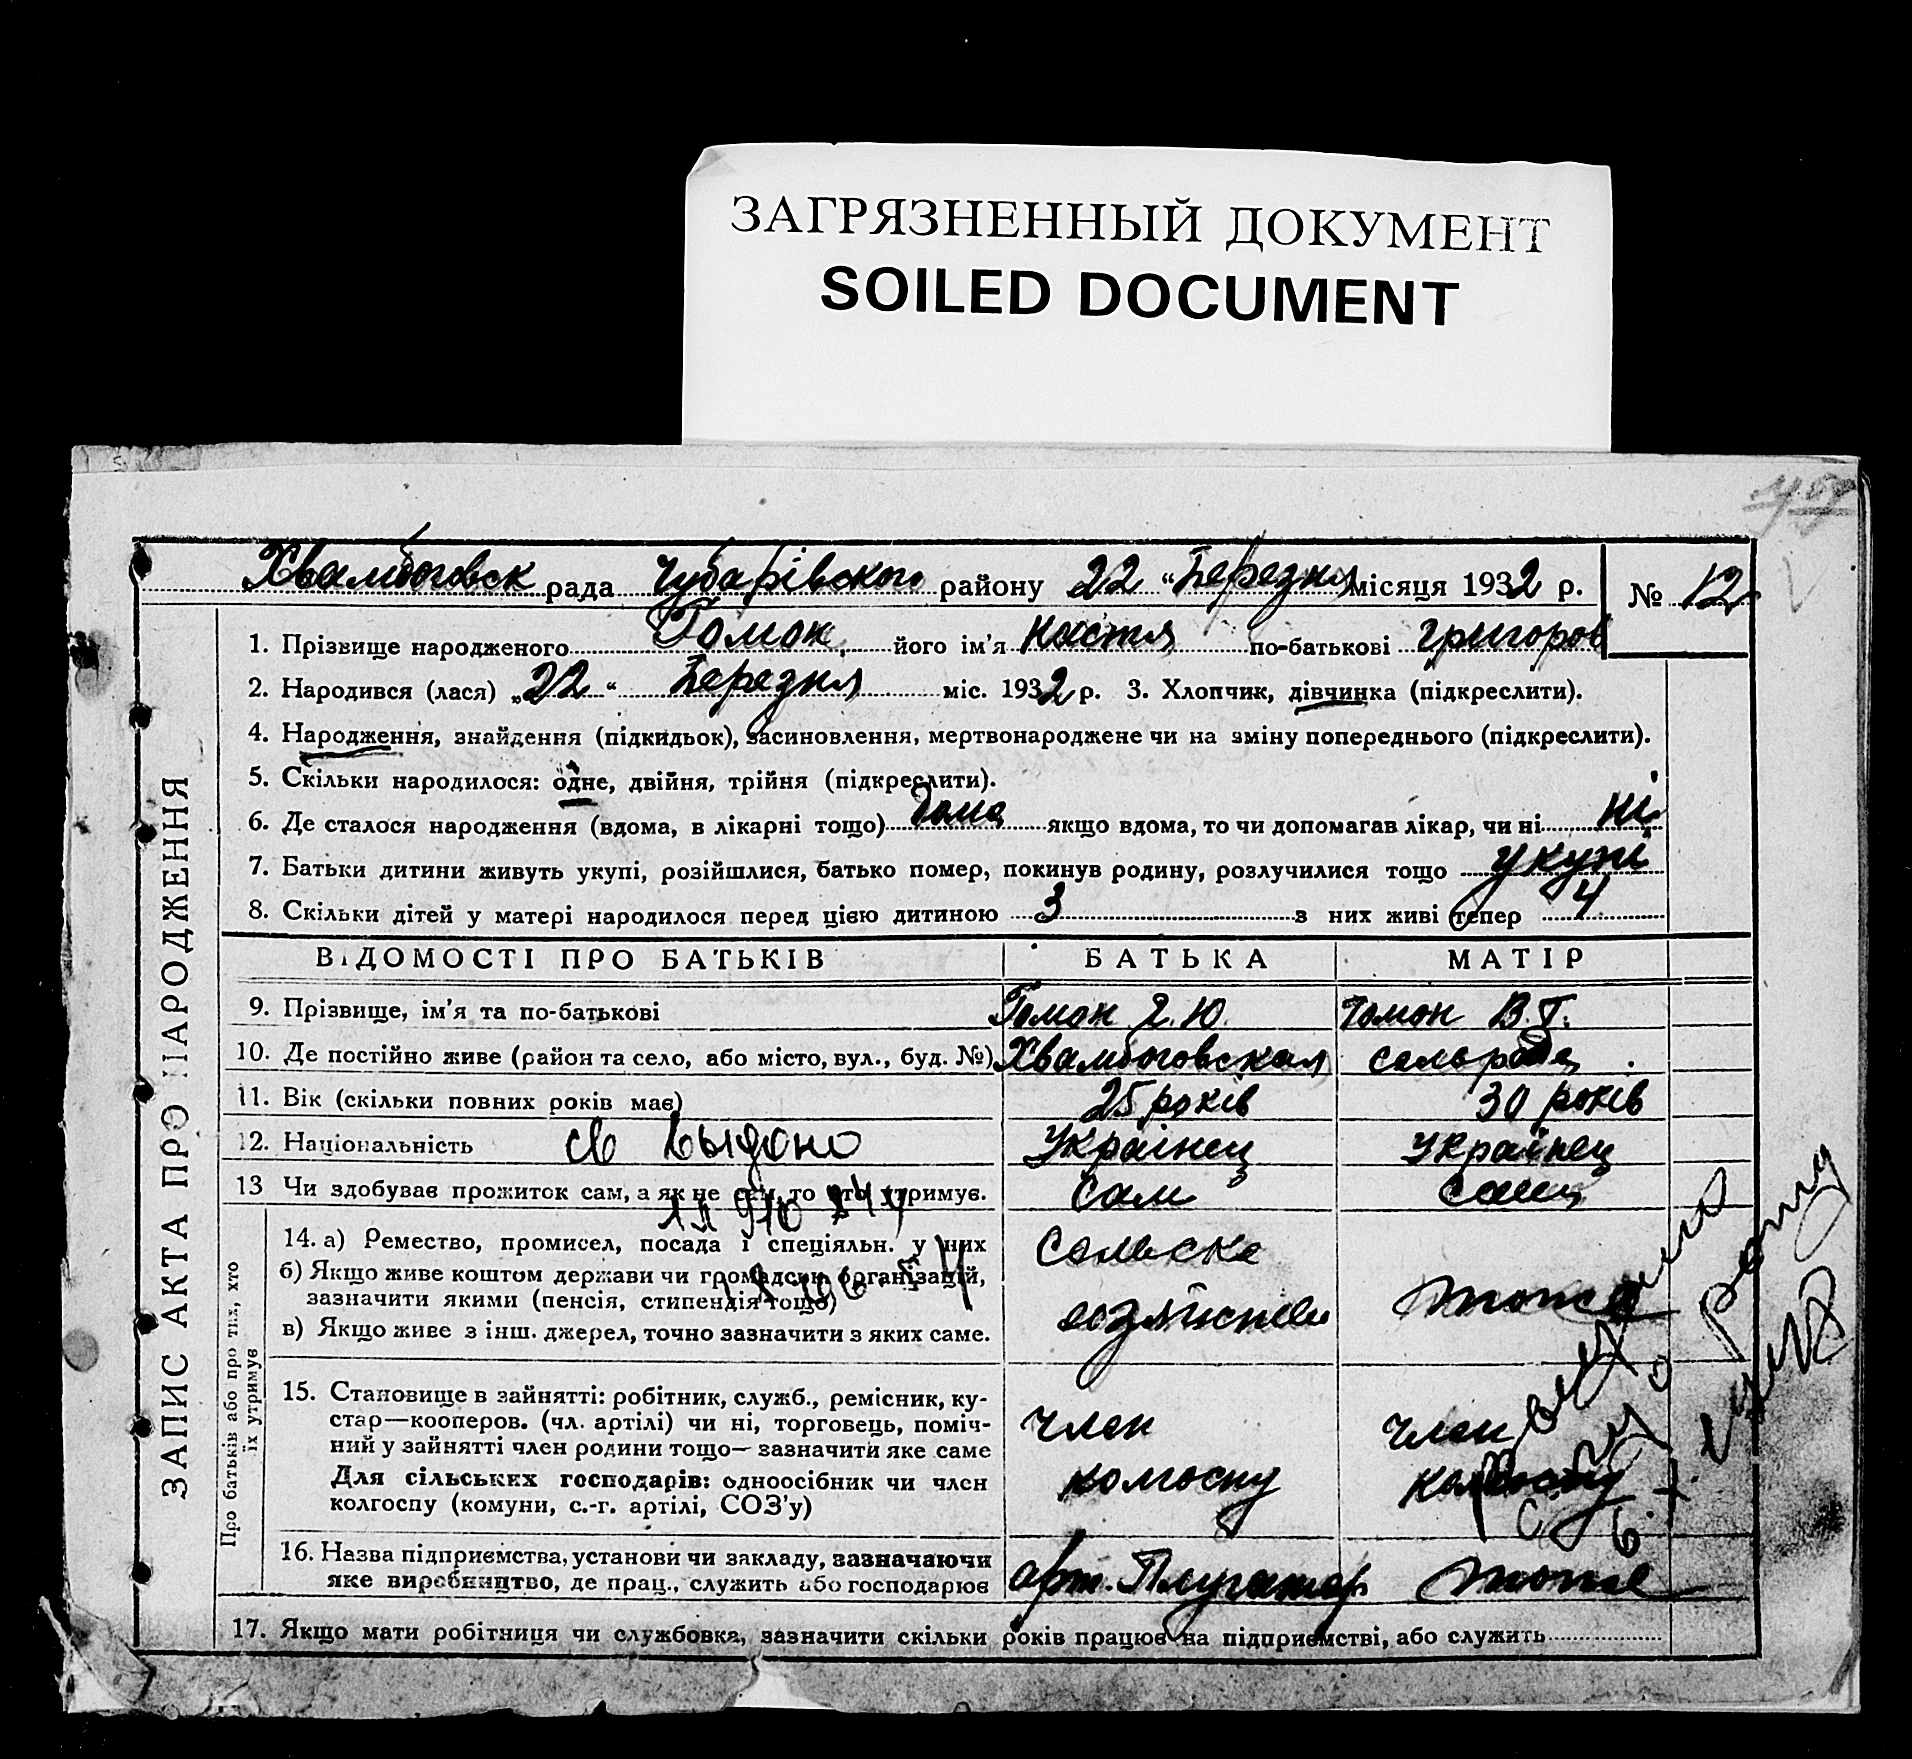 ЗАГРЯЗНЕННЫЙ ДОКУМЕНТ
SOILED DOCUMENT
Хвамбоговск рада Чубарівского району 22 "Березня місяця 1932 р. № 12
1. Прізвище народженого Гомон його ім'я Настя по-батькові Григоров
2. Народився (лася) „22“ Березня міс. 1932 р. 3. Хлопчик, дівчинка (підкреслити).
4. Народження, знайдення (підкидьок), засиновлення, мертвонароджене чи на зміну попереднього (підкреслити).
5. Скільки народилося: одне, двійня, трійня (підкреслити).
6. Де сталося народження (вдома, в лікарні тощо) дома якщо вдома, то чи допомагав лікар, чи ні ні
7. Батьки дитини живуть укупі, розійшлися, батько помер, покинув родину, розлучилися тощо укупі
8. Скільки дітей у матері народилося перед цією дитиною 3 з них живі тепер 4
ВІДОМОСТІ ПРО БАТЬКІВ БАТЬКА МАТІР
9. Прізвище, ім'я та по-батькові Гомон Г. Ю. Гомон В. Г.
10. Де постійно живе (район та село, або місто, вул., буд. №) Хвамбоговская сельрада
11. Вік (скільки повних років має) 25 років 30 років
12. Національність Українец Українец
св выдано
13 Чи здобував прожиток сам, а як не сам, то хто утримує. Сам
14. а) Ремество, промисел, посада і спеціяльн. у них Сельске
б) Якщо живе коштом держави чи громадськ. організацій,
зазначити якими (пенсія, стипендія тощо)
в) Якщо живе з інш. джерел, точно зазначити з яких саме.
15. Становище в зайнятті: робітник, служб., ремісник, ку-
стар—кооперов. (чл. артілі) чи ні, торговець, поміч- член член
ний у зайнятті член родини тощо— зазначити яке саме
Для сільських господарів: одноосібник чи член колгоспу колгоспу
колгоспу (комуни, с.-г. артілі, СОЗ'у)
16. Назва підприємства, установи чи закладу, зазначаючи
яке виробництво, де прац., служить або господарює арт. Плугатар
17. Якщо мати робітниця чи службовка, зазначити скільки років працює на підприємстві, або служить
ЗАПИС АКТА ПРО НАРОДЖЕННЯ
Про батьків або про тих, хто
їх утримує